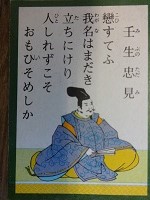 壬生忠見
戀すてふ
我名はまだき
立ちにけり
人しれずこそ
おもひそめしか